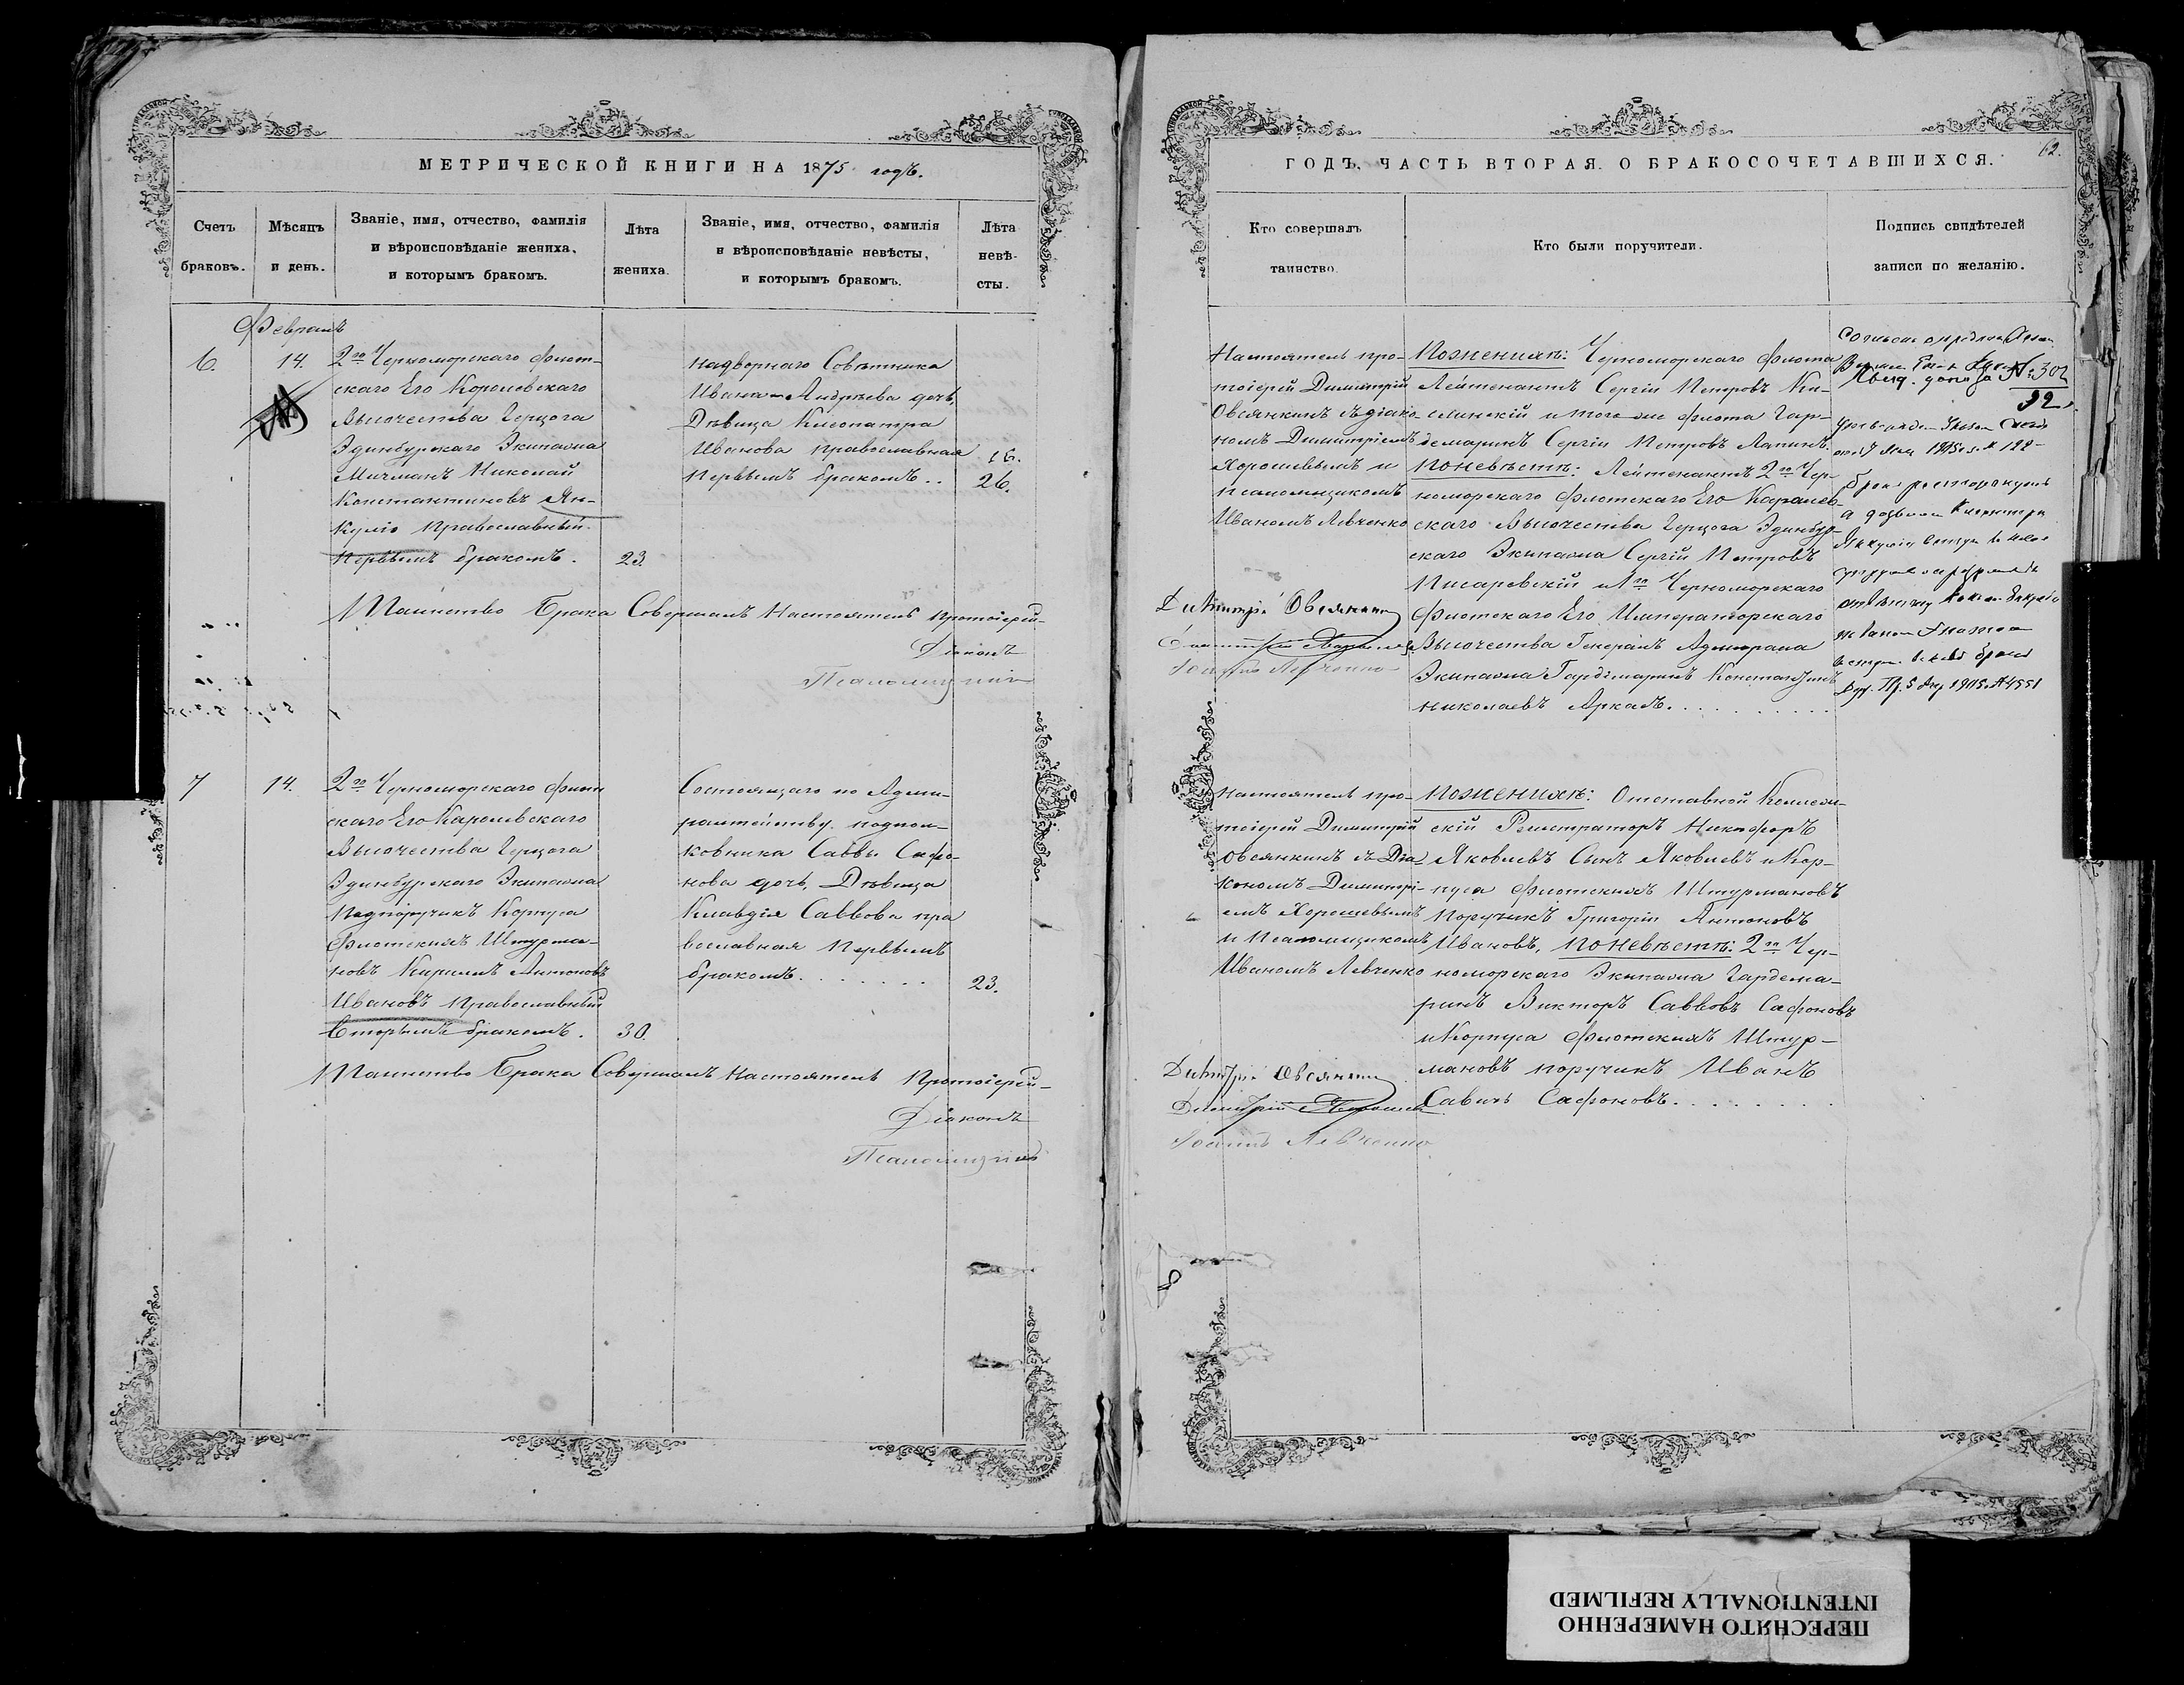 МЕТРИЧЕСКОЙ КНИГИ НА 1875 годъ.
Счетъ браковъ.
Мѣсяцъ и день.
Званіе, имя, отчество, фамилія
и вѣроисповѣданіе жениха,
и которымъ бракомъ.
Лѣта
жениха.
Званіе, имя, отчество, фамилія
и вѣроисповѣданіе невѣсты,
и которымъ бракомъ.
Лѣта
невѣ-
сты.
Февраль
6.
14.
2го Черноморскаго флот-
скаго Его Королевскаго
Высочества Герцога
Эдинбурскаго Экипажа
Мичманъ Николай
Константиновъ Ян-
куліо православный
первымъ бракомъ.
23.
надворнаго Совѣтника
Ивана Андрѣева дочь,
Дѣвица Клеопатра
Иванова православная
первымъ бракомъ..
16.
26.
Таинство Брака Совершалъ Настоятель протоіерей-
Діаконъ
Псаломщикъ
7
14.
2го Черноморскаго флот
скаго Его Каролевскаго
Высочества Герцога
Эдинбурскаго Экипажа
Подпоручикъ Корпуса
флотскихъ Штурма-
новъ Кирилъ Антоновъ
Ивановъ православный
вторымъ бракомъ.
30.
Состоящаго по Адми-
ралтейству подпол-
ковника Саввы Сафо-
нова дочь, Дѣвица
Клавдія Саввова пра
вославная первымъ
бракомъ.......
23.
Таинство Брака Совершалъ Настоятель Протоіерей-
Діаконъ
Псаломщикъ
62.
ГОДЪ, ЧАСТЬ ВТОРАЯ. О БРАКОСОЧЕТАВШИХСЯ.
Кто совершалъ
таинство.
Кто были поручители.
Подпись свидѣтелей
записи по желанію.
Настоятель про-
тоіерей Димитрій
Овсянкинъ съ діако-
номъ Димитріемъ
Хорошевымъ и
псаломщикомъ
Иваномъ Левченко
Димитрій Овсянкин
Іоаннъ Левченко
По женихѣ: Черноморскаго флота
Лейтенантъ Сергій Петровъ Ки-
селинскій и того же флота гар-
демаринъ Сергій Петровъ Лапинъ.
По невѣстѣ: Лейтенантъ 2го Чер-
номорскаго флотскаго Его Каролев-
скаго Высочества Герцога Эдинбур-
скаго Экипажа Сергій Петровъ
Писаревскій и 1го Черноморскаго
флотскаго Его Императорскаго
Высочества Генералъ Адмирала
Экипажа Гардемаринъ Константинъ
Николаевъ Аркасъ..........
№ 302
92
бракъ расторгнутъ
Настоятель про-
тоіерей Димитрій
Овсянкинъ съ Діа-
кономъ Димитрі-
емъ Хорошевымъ
и Псаломщикомъ
Иваномъ Левченко
Димитрій Овсянкин
Іоаннъ Левченко
По женихѣ: Отставной Коллеж-
скій Регистраторъ Никифоръ
Яковлевъ Сынъ Яковлевъ и Кор-
пуса флотскихъ Штурмановъ
Поручикъ Григорій Антоновъ
Ивановъ, По невѣстѣ: 2го Чер-
номорскаго Экипажа Гардема-
ринъ Викторъ Саввовъ Сафоновъ
и Корпуса флотскихъ Штур-
мановъ поручикъ Иванъ
Савинъ Сафоновъ........
ПЕРЕСНЯТО НАМЕРЕННО
INTENTIONALLY REFILMED